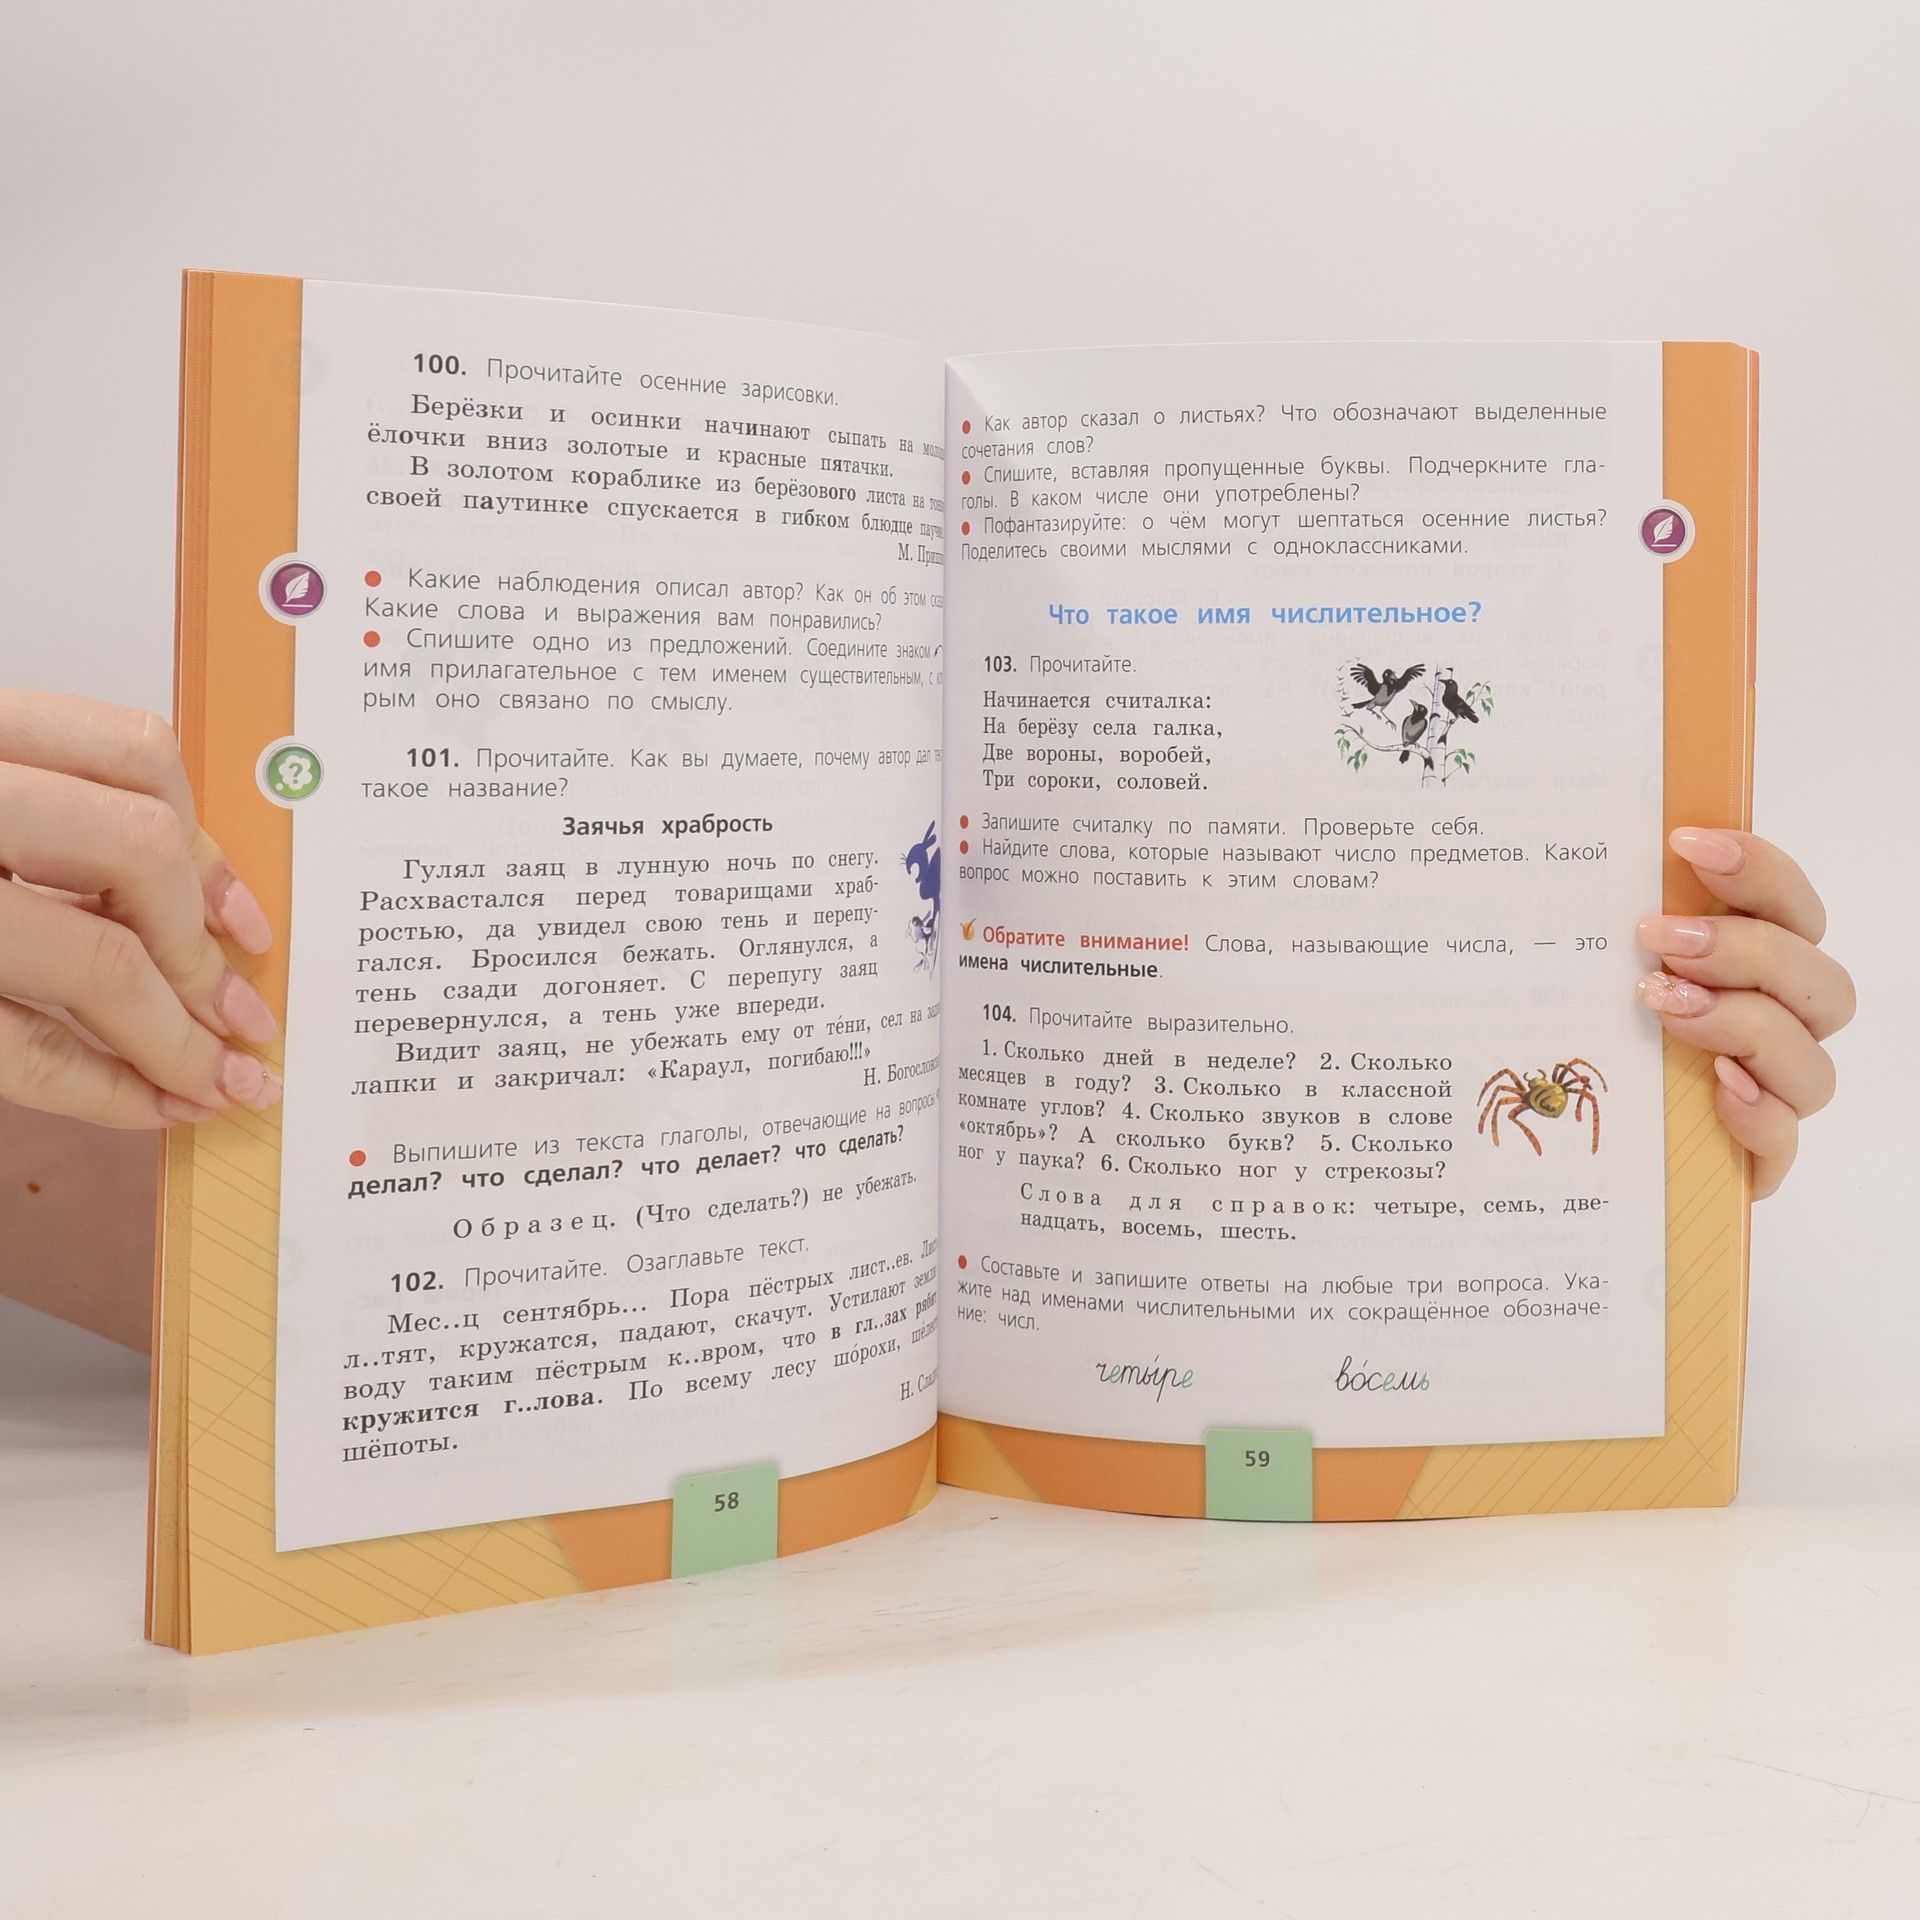 100. Прочитайте осенние зарисовки.
Берёзки и осинки начинают сыпать на
ёлочки вниз золотые и красные пятачки.
В золотом кораблике из берёзового листа на
своей паутинке спускается в гибком блюдце
М.
Какие наблюдения описал автор? Как он об этом
Какие слова и выражения вам понравились?
Спишите одно из предложений. Соедините знаком
имя прилагательное с тем именем существительным, с
рым оно связано по смыслу.
101. Прочитайте. Как вы думаете, почему автор дал
такое название?
Заячья храбрость
Гулял заяц в лунную ночь по снегу.
Расхвастался перед товарищами храб-
ростью, да увидел свою тень и перепу-
гался. Бросился бежать. Оглянулся, а
тень сзади догоняет. С перепугу заяц
перевернулся, а тень уже впереди.
Видит заяц, не убежать ему от те́ни, сел на
лапки и закричал: «Караул, погибаю!!!»
Н.
Выпишите из текста глаголы, отвечающие на вопросы
делал? что сделал? что делает? что сделать?
Образец. (Что сделать?) не убежать.
102. Прочитайте. Озаглавьте текст.
Мес..ц сентябрь... Пора пёстрых лист..ев.
л..тят, кружатся, падают, скачут. Устилают
воду таким пёстрым к..вром, что в гл..зах
кружится г..лова. По всему лесу шо́рохи,
Н.
шёпоты.
58
Как автор сказал о листьях? Что обозначают выделенные
сочетания слов?
Спишите, вставляя пропущенные буквы. Подчеркните гла-
голы. В каком числе они употреблены?
Пофантазируйте: о чём могут шептаться осенние листья?
Поделитесь своими мыслями с одноклассниками.
Что такое имя числительное?
103. Прочитайте.
Начинается считалка:
На берёзу села галка,
Две вороны, воробей,
Три сороки, соловей.
Запишите считалку по памяти. Проверьте себя.
Найдите слова, которые называют число предметов. Какой
вопрос можно поставить к этим словам?
Обратите внимание! Слова, называющие числа, — это
имена числительные.
104. Прочитайте выразительно.
1. Сколько дней в неделе? 2. Сколько
месяцев в году? 3. Сколько в классной
комнате углов? 4. Сколько звуков в слове
«октябрь»? А сколько букв? 5. Сколько
ног у паука? 6. Сколько ног у стрекозы?
Слова для справок: четыре, семь, две-
надцать, восемь, шесть.
Составьте и запишите ответы на любые три вопроса. Ука-
жите над именами числительными их сокращённое обозначе-
ние: числ.
четы́ре во́семь
59